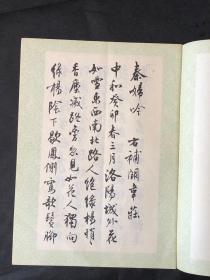 秦婦吟 右補闕韋莊
中和癸卯春三月洛陽城外花
如雪東西南北路人絕綠楊悄
香塵滅路旁忽見如花人獨向
綠楊陰下歇鳳側鸞欹鬢腳